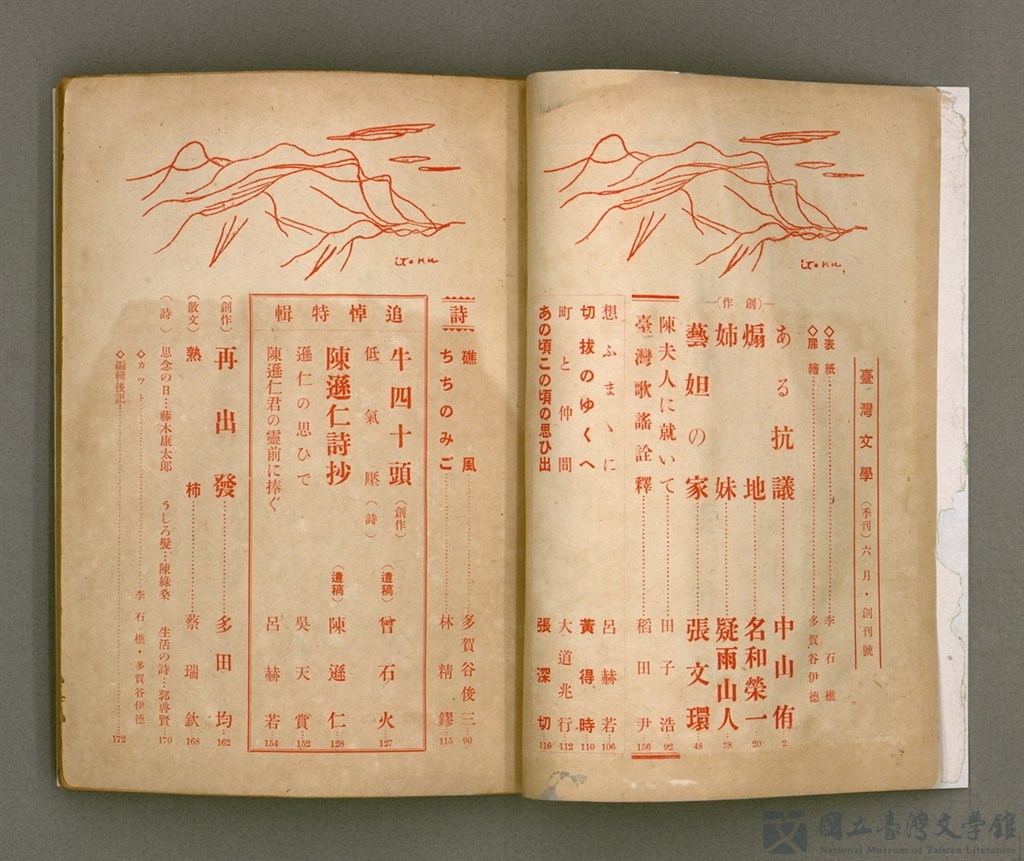 臺灣文學（季刊）六月・創刊號
◇表紙……李石樵
◇扉繪……多賀谷伊德
―（創作）―
ある抗議……中山侑 2
煽地……名和榮一 20
姉妹……疑雨山人 38
藝妲の家……張文環 48
陳夫人に就いて……田子浩 92
臺灣歌謠詮釋……稻田尹 156
想ふまゝに……呂赫若 106
切拔のゆくへ……黃得時 110
町と仲間……大道兆行 112
あの頃この頃の思ひ出……張深切 116
itoku.
詩
礁風……多賀谷俊三 90
ちちのみご……林精鏐 115
追悼特輯
牛四十頭（創作）（遺稿）曾石火 127
低氣壓（詩）
陳遜仁詩抄（遺稿）陳遜仁 128
遜仁の思ひで 吳天賞 152
陳遜仁君の靈前に捧ぐ 呂赫若 154
（創作）再出發……多田均 162
（散文）熟柿……蔡瑞欽 168
（詩）思念の日…藤木康太郎 うしろ髮…陳綠桑 生活の詩…郭啓賢… 170
◇カット……李石樵・多賀谷伊德
◇編輯後記…… 172
itoku
國立臺灣文學館
National Museum of Taiwan Literature